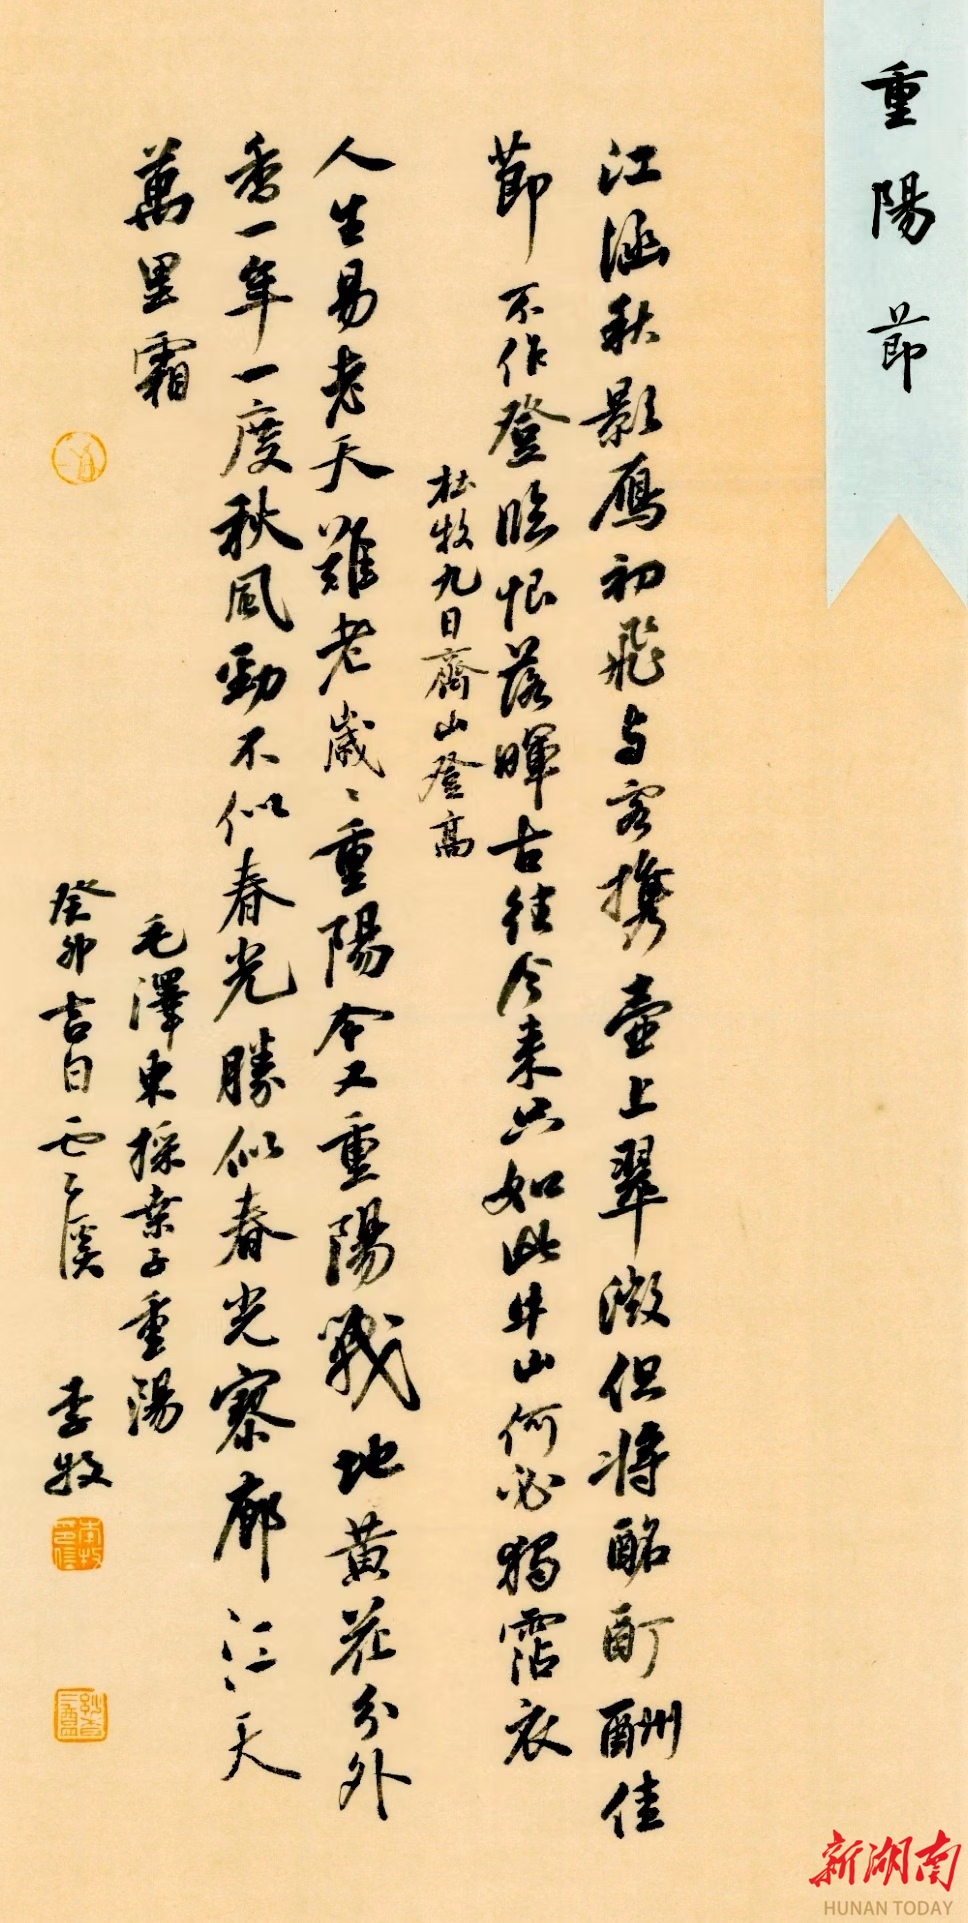 重陽節
江涵秋影雁初飛与客携壺上翠微但将酩酊酬佳
節不作登臨恨落暉古往今来只如此牛山何必獨霑衣
杜牧九日齊山登高
人生易老天難老歲〻重陽今又重陽戰地黄花分外
香一年一度秋風勁不似春光勝似春光寥廓江天
萬里霜
毛澤東採桑子重陽
癸卯吉日 李牧
李牧
新湖南
HUNAN TODAY